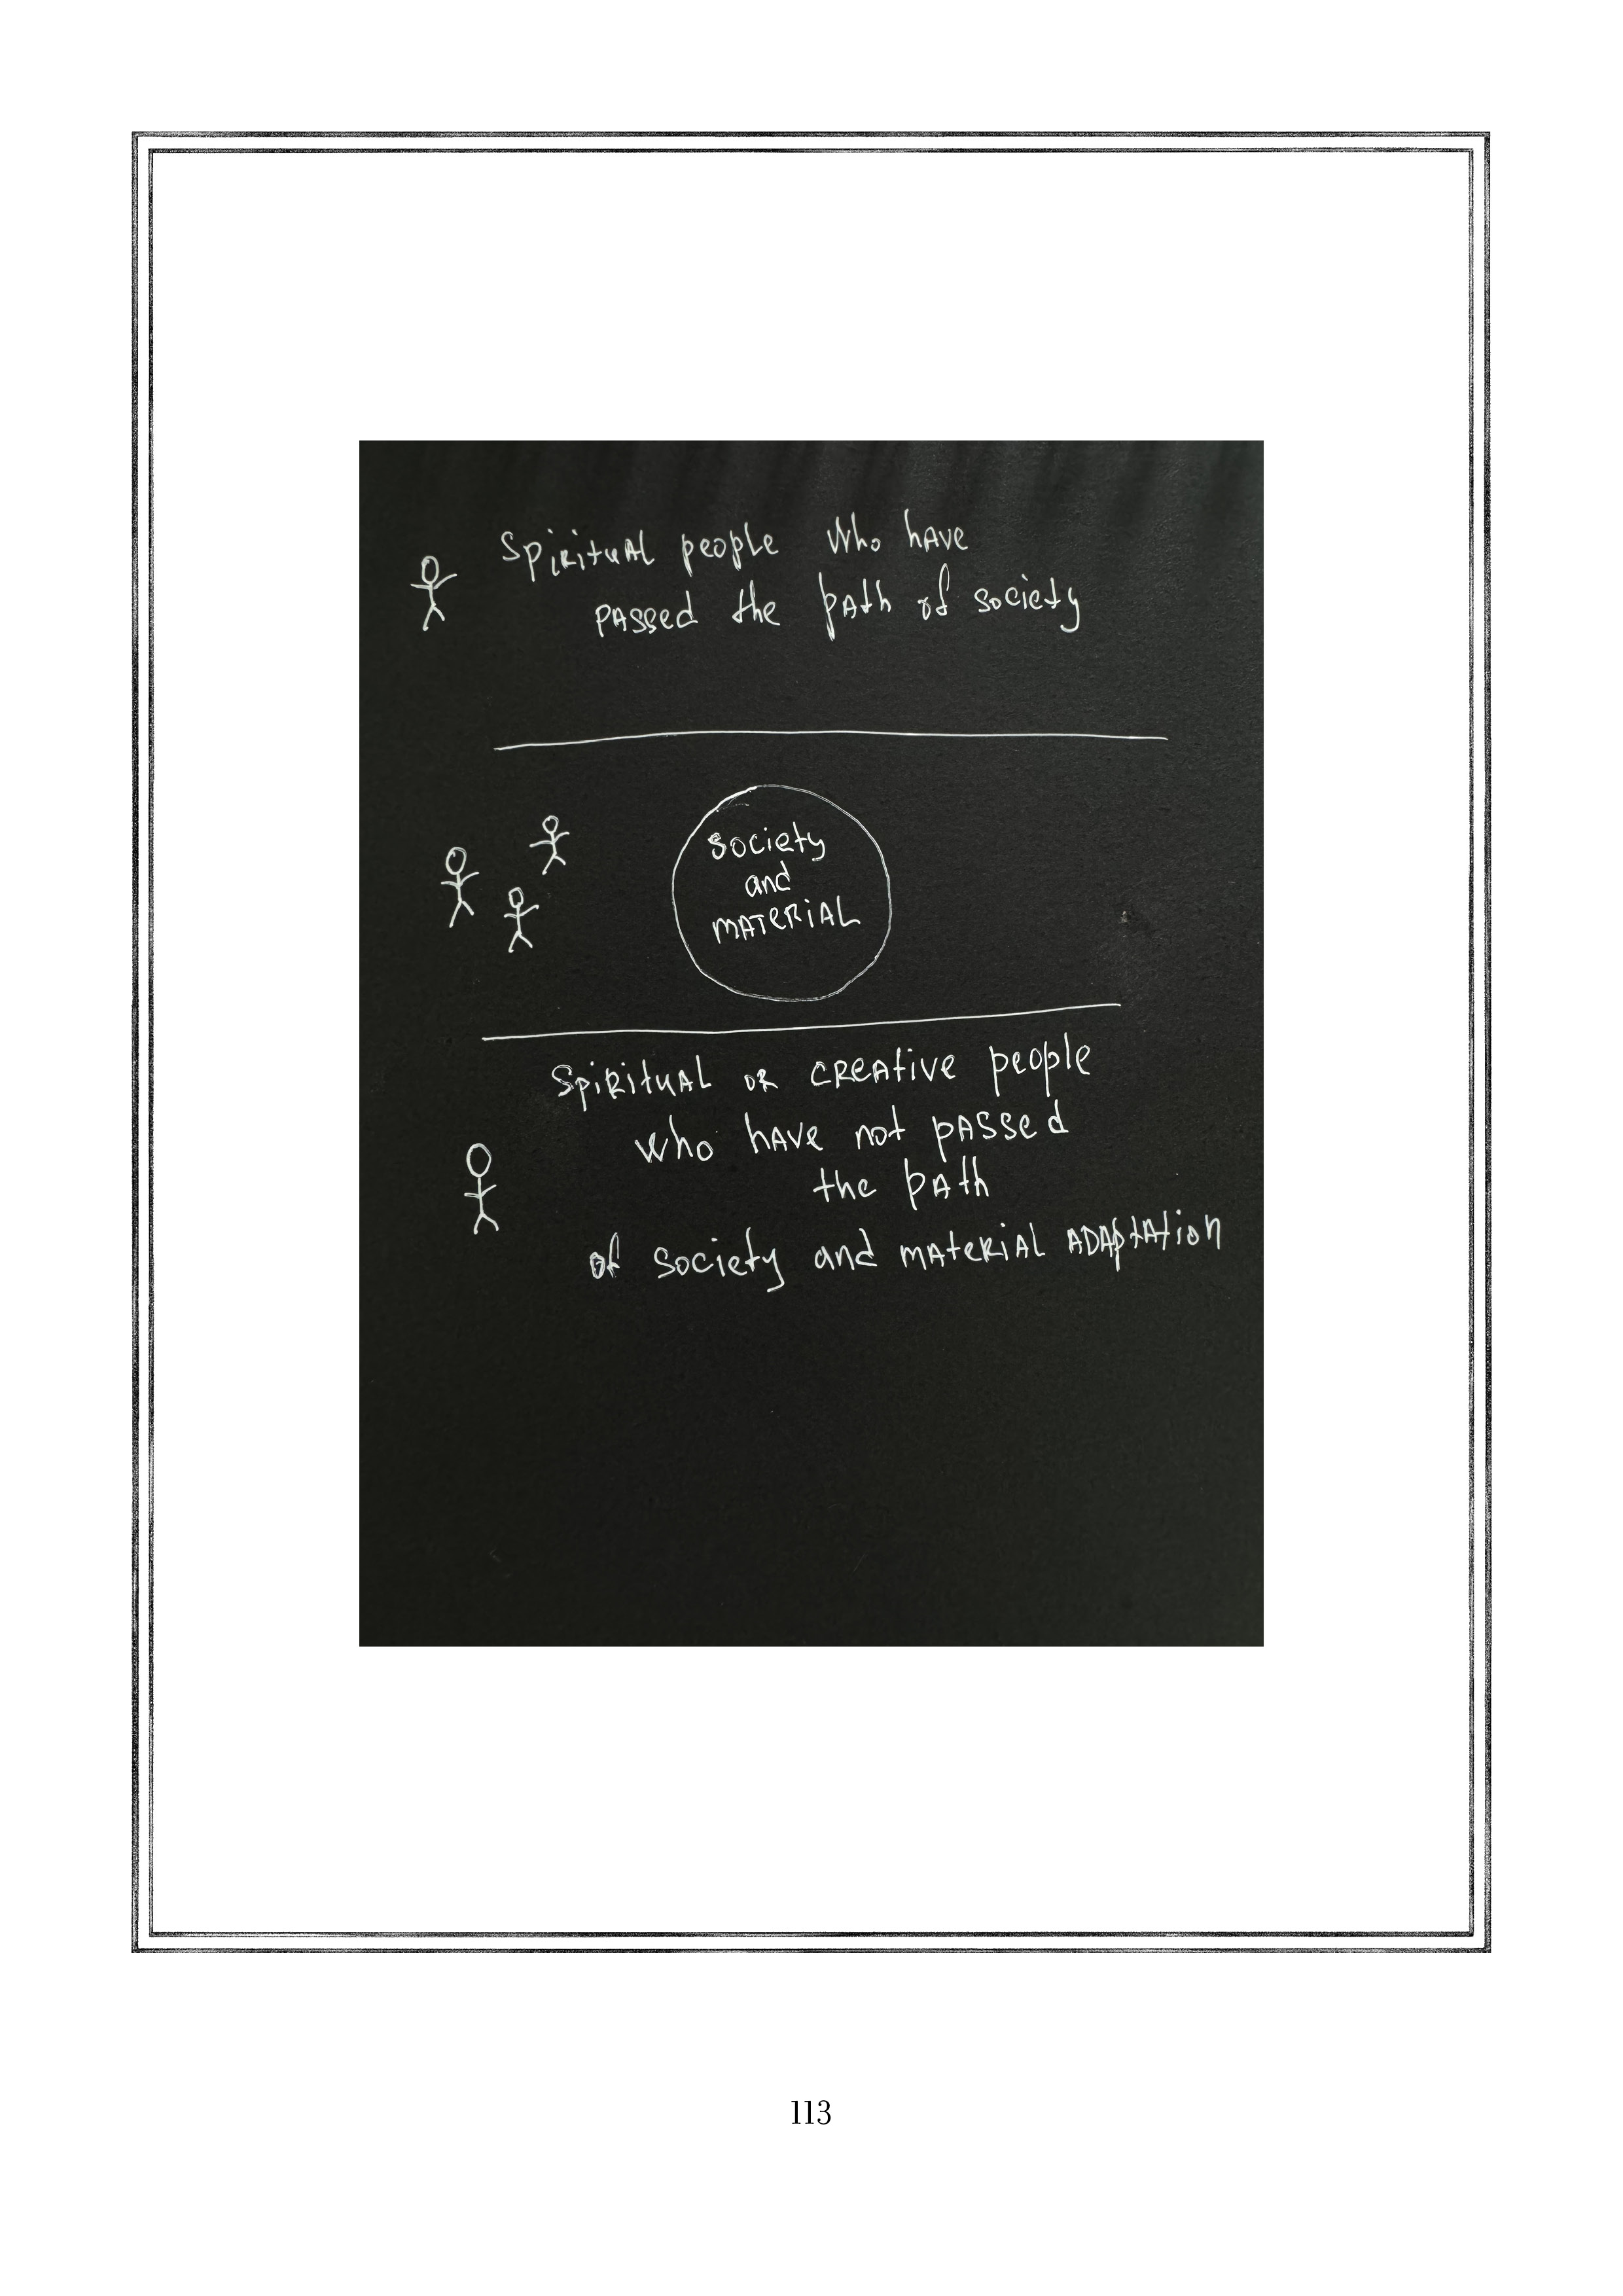 Spiritual people who have
passed the path of society
society
and
material
Spiritual or creative people
who have not passed
the path
of society and material adaptation
113